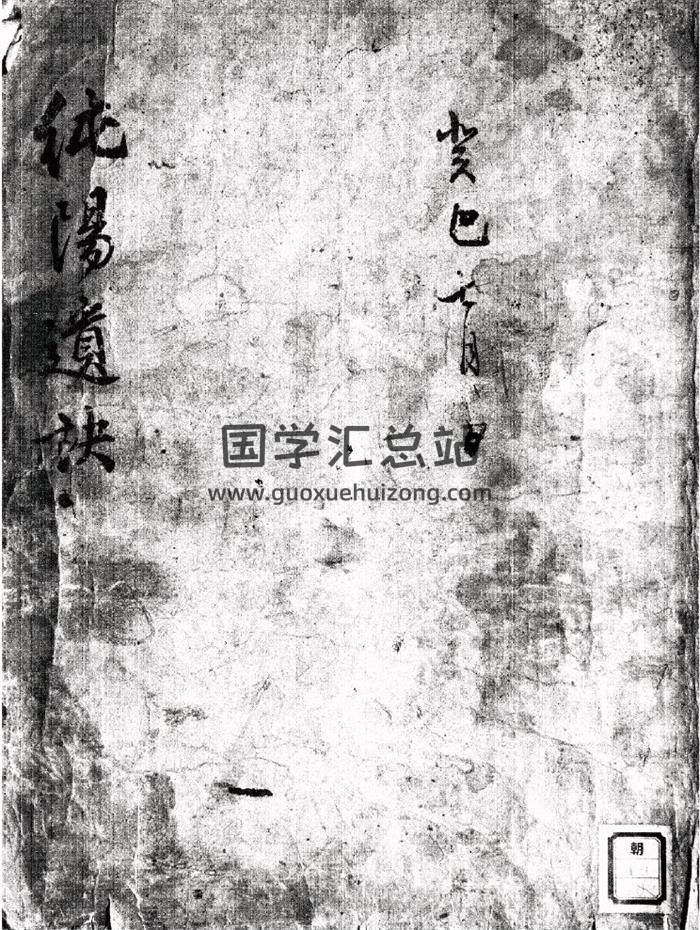 癸巳七月 日
純陽遺訣
国学汇总站
www.guoxuehuizong.com
朝